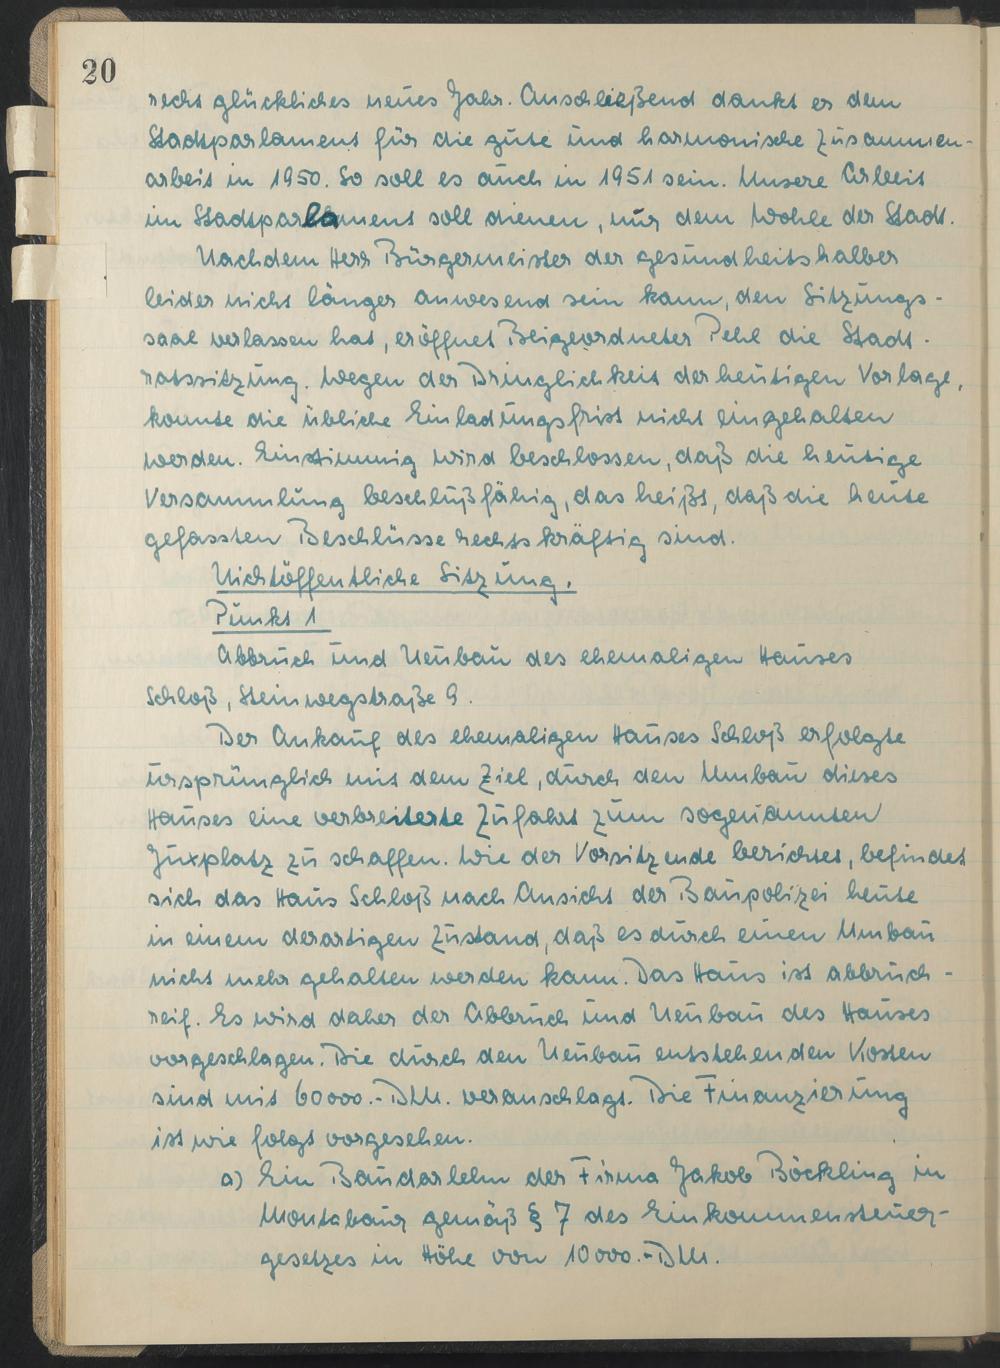 20
recht glückliches neues Jahr. Anschließend dankt er dem
Stadtparlament für die gute und harmonische Zusammen-
arbeit in 1950. So soll es auch in 1951 sein. Unsere Arbeit
im Stadtparlament soll dienen, nur dem Wohle der Stadt.
Nachdem Herr Bürgermeister der gesundheitshalber
leider nicht länger anwesend sein kann, den Sitzungs-
saal verlassen hat, eröffnet Beigeordneter Pehl die Stadt-
ratssitzung. Wegen der Dringlichkeit der heutigen Vorlage,
konnte die übliche Einladungsfrist nicht eingehalten
werden. Einstimmig wird beschlossen, daß die heutige
Versammlung beschlußfähig, das heißt, daß die heute
gefassten Beschlüsse rechtskräftig sind.
Nichtöffentliche Sitzung.
Punkt 1
Abbruch und Neubau des ehemaligen Hauses
Schloß, Steinwegstraße 9.
Der Ankauf des ehemaligen Hauses Schloß erfolgte
ursprünglich mit dem Ziel, durch den Umbau dieses
Hauses eine verbreiterte Zufahrt zum sogenannten
Juxplatz zu schaffen. Wie der Vorsitzende berichtet, befindet
sich das Haus Schloß nach Ansicht der Baupolizei heute
in einem derartigen Zustand, daß es durch einen Umbau
nicht mehr gehalten werden kann. Das Haus ist abbruch-
reif. Es wird daher der Abbruch und Neubau des Hauses
vorgeschlagen. Die durch den Neubau entstehenden Kosten
sind mit 60000.- DM. veranschlagt. Die Finanzierung
ist wie folgt vorgesehen.
a) Ein Baudarlehn der Firma Jakob Böckling in
Montabaur gemäß § 7 des Einkommensteuer-
gesetzes in Höhe von 10000.- DM.